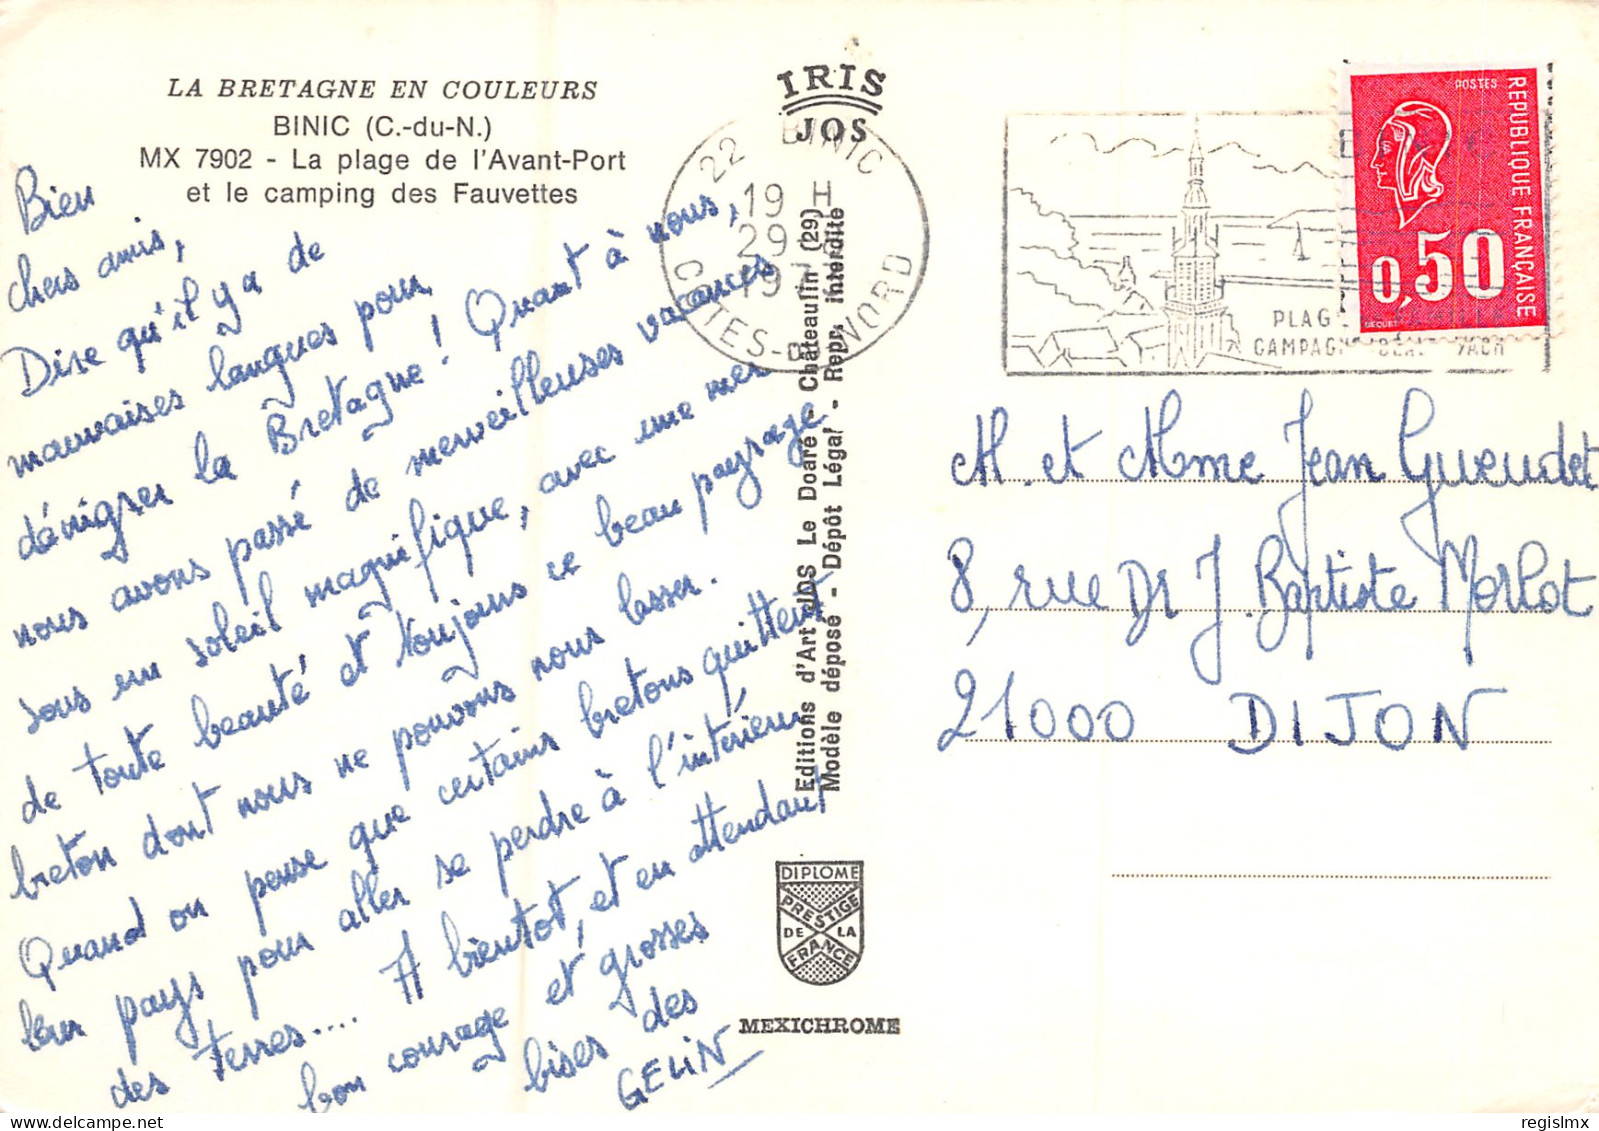 LA BRETAGNE EN COULEURS
BINIC (C.-du-N.)
MX 7902 - La plage de l'Avant-Port
et le camping des Fauvettes
Bien
chers amis,
Dire qu'il y a de
mauvaises langues pour
dénigrer la Bretagne ! Quant à nous,
nous avons passé de merveilleuses vacances
sous un soleil magnifique, avec une mer
de toute beauté et toujours ce beau paysage
breton dont nous ne pouvons nous lasser.
Quand on pense que certains bretons quittent
leur pays pour aller se perdre à l'intérieur
des terres.... A bientot, et en attendant
bon courage et grosses
bises des
GELIN
IRIS
JOS
22 BINIC
19 H
29
19
COTES-D NORD
Editions d'Art JOS Le Doaré - Châteaulin (29)
Modèle déposé - Dépôt Légal - Repr. interdite
DIPLOME
PRESTIGE
DE LA
FRANCE
MEXICHROME
PLAG
CAMPAGN
YACH
POSTES
REPUBLIQUE FRANCAISE
0,50
BEQUET
M. et Mme Jean Gueudet
8, rue Dr J. Baptiste Morlot
21000 DIJON
regislmx